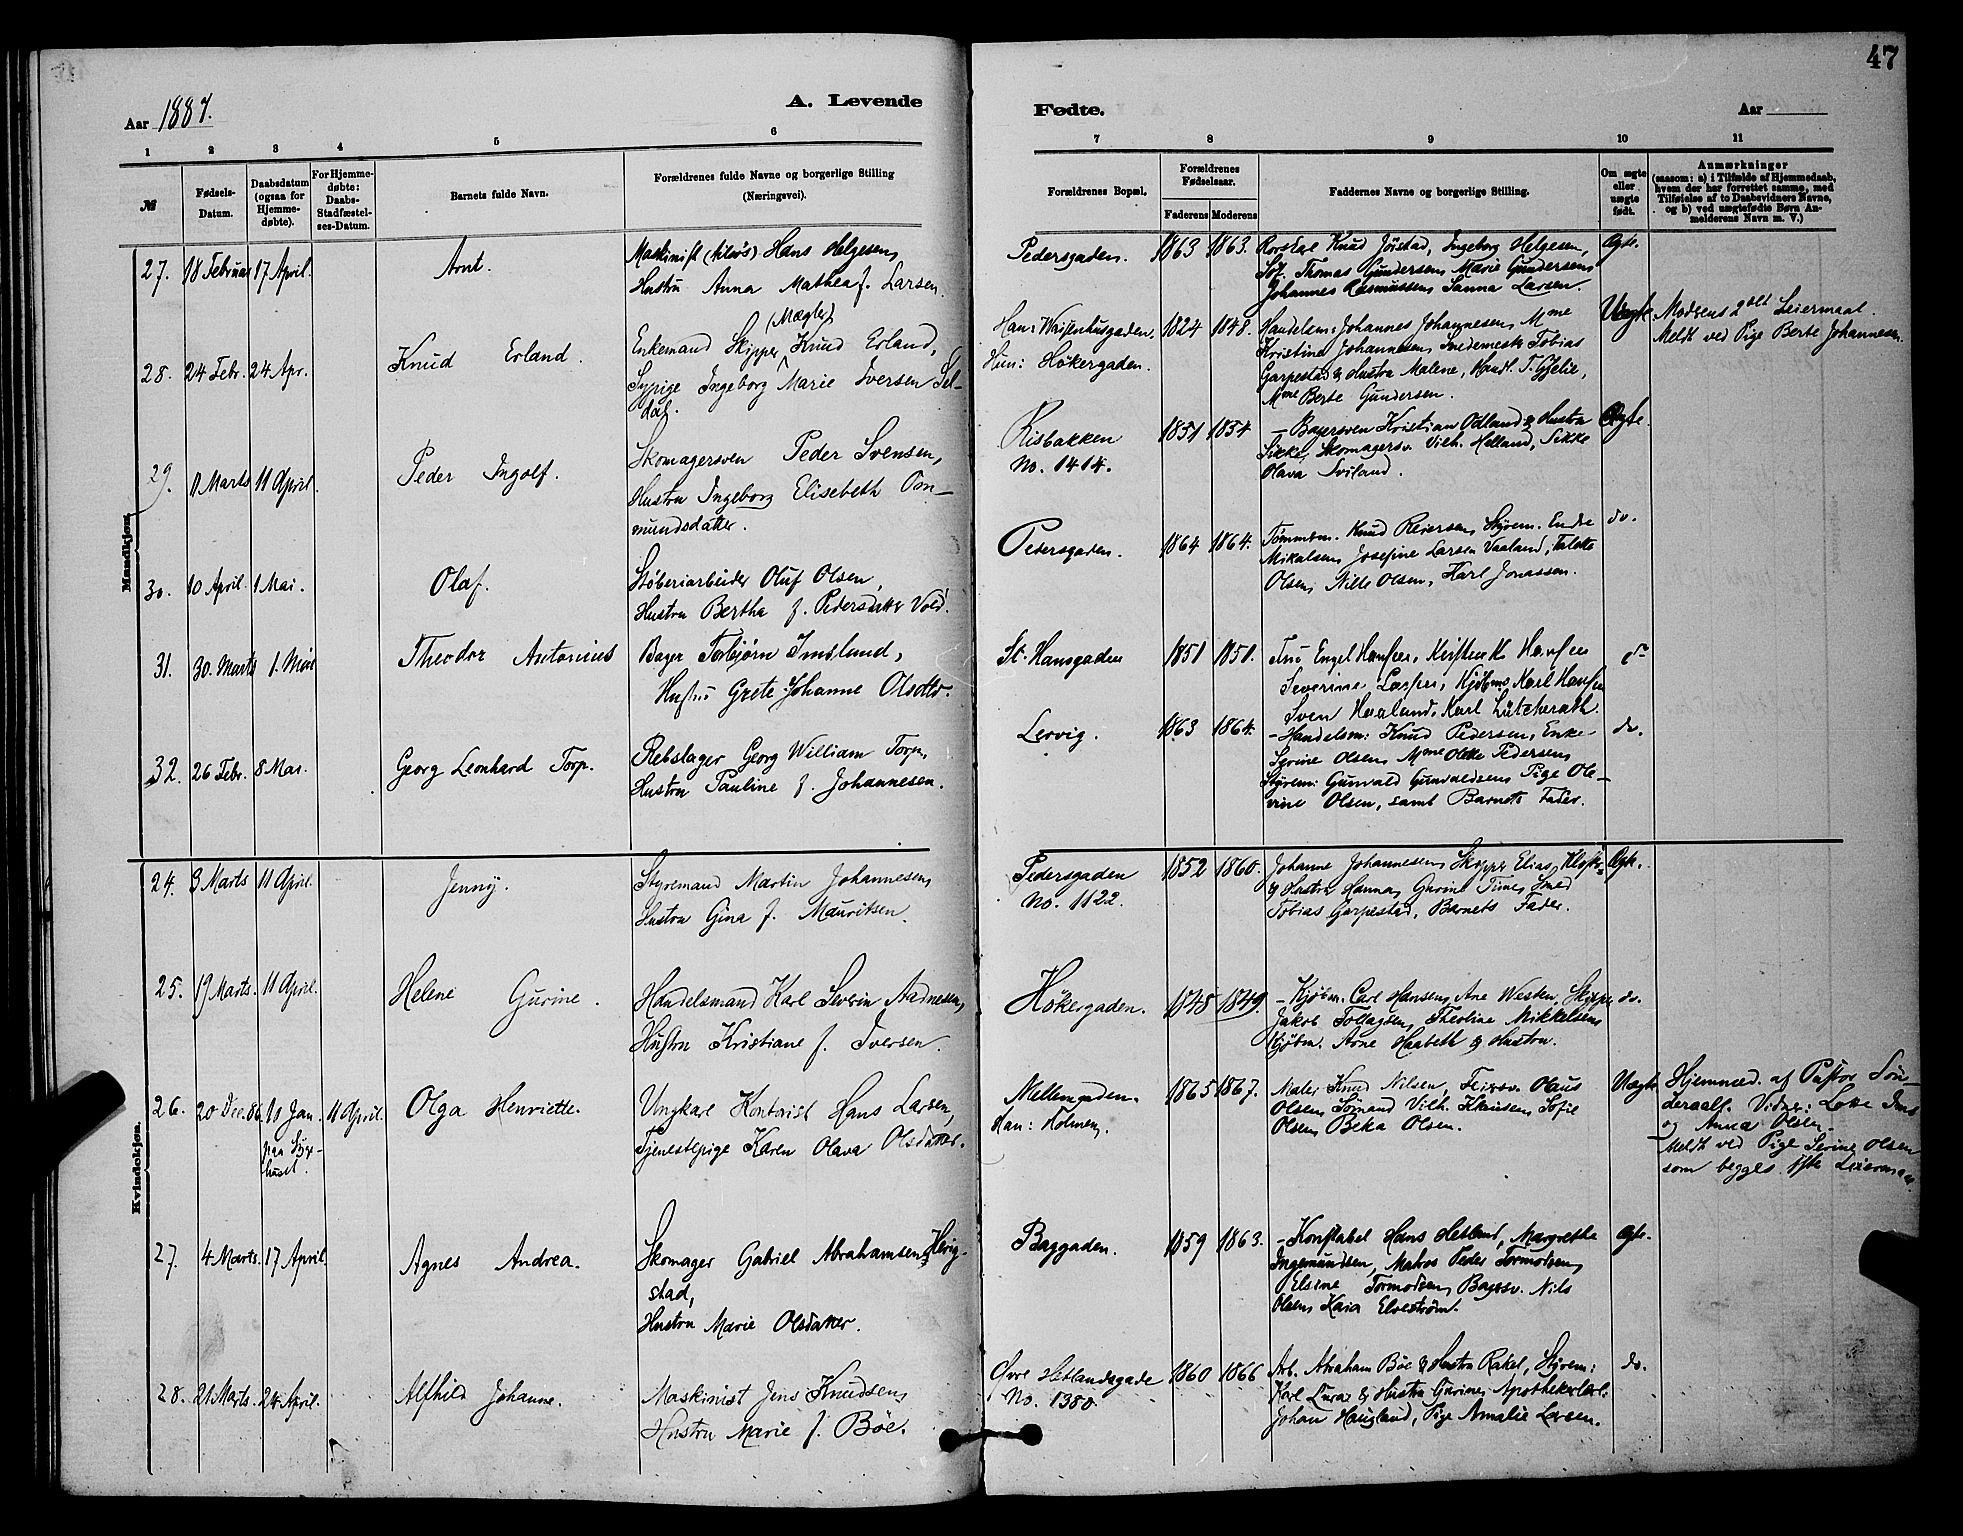 47
Aar 1887.
A. Levende
Fødte.
Aar
1 2 3 4 5 6 7 8 9 10 11
№
Fødsels-
Datum.
Daabsdatum
(ogsaa for
Hjemme-
døbte).
For Hjemme-
døbte:
Daabs-
Stadfæstel-
ses-Datum.
Barnets fulde Navn.
Forældrenes fulde Navne og borgerlige Stilling
(Næringsvei).
Forældrenes Bopæl.
Forældrenes
Fødselsaar.
Faderens Moderens
Faddernes Navne og borgerlige Stilling.
Om ægte
eller
uægte
født.
Anmærkninger
(saasom: a) i Tilfælde af Hjemmedaab,
hvem der har forrettet samme, med
Tilføielse af to Daabsvidners Navne,
og b) ved uægtefødte Børn An-
melderens Navn m. V.)
Mandkjøn.
27. 18 Februar 17 April.
Arnt.
Maskinist Hans Helgesen,
Hustru Anna Mathea f. Larsen.
Pedersgaden.
1863 1863.
Knud Jöistad, Ingeborg Helgesen,
Söf. Thomas Gundersen, Marie Gundersen,
Johannes Rasmussen, Sanna Larsen.
Ægte.
28. 24 Febr. 24 Apr.
Knud Erland.
(Mægler)
Enkemand Skipper Knud Erland,
Sypige Ingeborg Marie Iversen Sel-
dal.
Han: Waisenhusgaden.
Hun: Høkergaden.
1824 1848.
Handelsm: Johannes Johannesen, Mme
Kristine Johannesen, Smedemester Tobias
Garpestad & Hustru Malene, Handl. T. Gjelie,
Mme Berte Gundersen.
Uægte
Modrens 2det Leiermaal.
Meldt ved Pige Berte Johannesen.
29. 11 Marts 11 April.
Peder Ingolf.
Skomagersven Peder Svensen,
Hustru Ingeborg Elisebeth Om-
mundsdatter.
Risbakken
No. 1414.
1851 1854
- Bagersven Kristian Odland & Hustru
Sikke, Skomagersv. Vilh. Helland, Sikke
Olava Sviland.
Ægte.
30. 10 April. 1 Mai.
Olaf.
Støberiarbeider Oluf Olsen,
Hustru Bertha f. Pedersdatter Vold.
Pedersgaden.
1864 1864.
Tømmerm. Knud Reiersen, Styrem. Endre
Mikalsen, Josefine Larsen Vaaland,
Olsen, Nille Olsen, Karl Jonassen.
do.
31. 30. Marts 1. Mai
Theodor Antonius
Bager Torbjørn Imsland,
Hustru Grete Johanne Olsdtr.
St. Hansgaden
1851 1851.
Fru Engel Hansen, Kirstine K. Hansen
Severine Larsen, Kjøbm Karl Hansen
Sven Haaland, Karl Lütcherath.
do
32. 26 Febr. 8 Mai.
Georg Leonhard Torp.
Rebslager Georg William Torp,
Hustru Pauline f. Johannesen.
Lervig.
1863 1864.
- Handelsm: Knud Pedersen, Enke-
Serine Olsen, Mme Olette Pedersen,
Styrem: Gunvald Gunvaldsen, Pige Ole-
vine Olsen, samt Barnets Fader.
do.
Kvindekjøn.
24. 3 Marts 11 April.
Jenny.
Styremand Martin Johannesen,
Hustru Gina f. Mauritsen.
Pedersgaden
No. 1122.
1852 1860.
Johanne Johannesen, Skipper Elias
& Hustru Hanna, Gurine Times, Smed
Tobias Garpestad, Barnets Fader.
Ægte.
25. 19 Marts. 11 April.
Helene Gurine.
Handelsmand Karl Severin Aadnesen,
Hustru Kristiane f. Iversen.
Høkergaden.
1848 1849.
- Kjøbm. Carl Hansen, Ane Westen, Skipper
Jakob Tollagsen, Theoline Mikkelsen,
Kjøbm. Arne Haabeth & Hustru.
do.
26. 20 Dec. 86. 10 Jan. 11 April.
paa Syge-
huset.
Olga Henriette.
Ungkarl Kontorist Hans Larsen,
Tjenestepige Karen Olava Olsdatter.
Mellemgaden.
Han: Holmen.
1865 1867.
Maler Knud Nilsen, Olaus
Olsen, Sømand Vilh. Knudsen, Sofie
Olsen, Beka Olsen.
Uægte
Hjemmed. af Pastor Sön-
deraal. Vidner: Lotte
og Anna Olsen.
Meldt ved Pige Serine Olsen
som begges 1ste Leiermaal.
27. 4 Marts. 17 April
Agnes Andrea.
Skomager Gabriel Abrahamsen Herig-
stad,
Hustru Marie Olsdatter.
Baggaden.
1859 1863.
- Konstabel Hans Hetland, Margrethe
Ingemundsen, Matros Peder Tormodsen,
Elsine Tormodsen, Bagersv. Nils
Olsen, Kaia Elvestrøm.
Ægte.
28. 21 Marts. 24 April.
Alfhild Johanne.
Maskinist Jens Knudsen,
Hustru Marie f. Böe.
Øvre Hetlandsgade
No. 1380.
1860 1866
Arb. Abraham Böe & Hustru Rakel, Styrem:
Karl Lura & Hustru Gurine, Apothekerlærl.
Johan Haugland, Pige Amalie Larsen.
do.